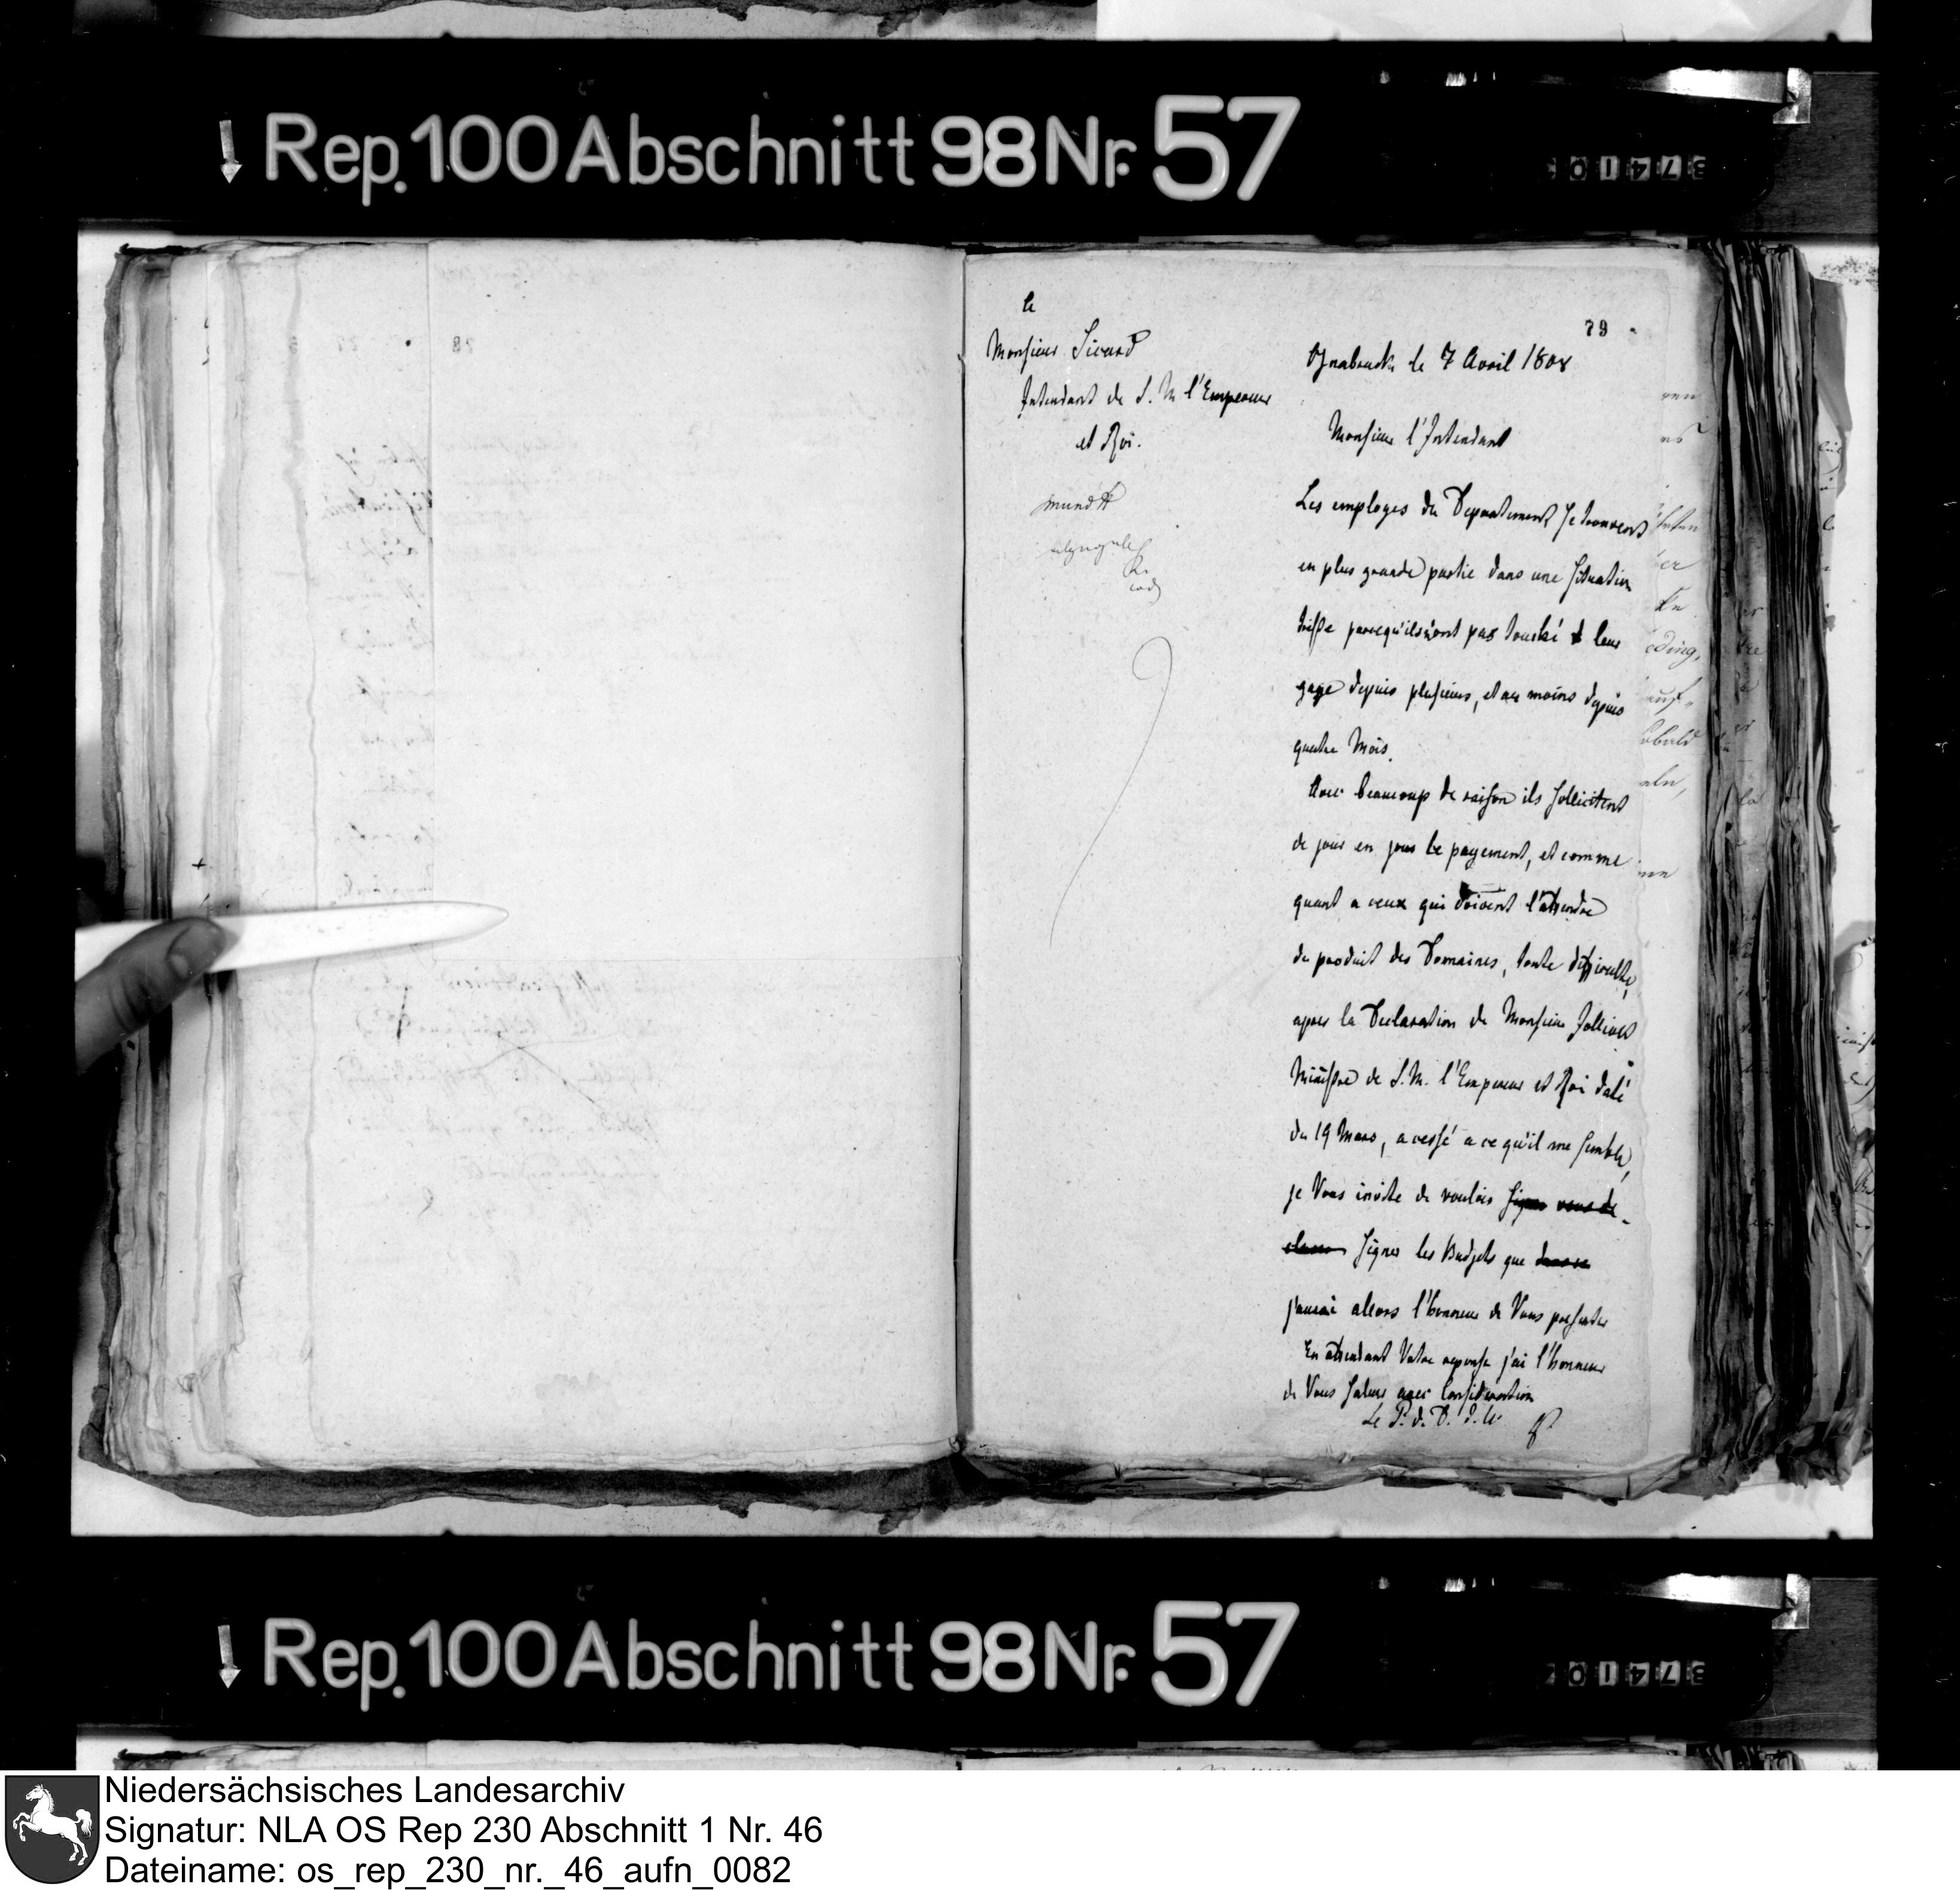 Rep. 100 Abschnitt 98 Nr. 57
79
a
Monsieur Sicard
Intendant de S. M l'Empereur
et Roi.
mundt
Osnabruck le 7 Avril 1808
Monsieur l'Intendant
Les employes du Departement se trouvent
en plus grande partie dans une situation
triste parcequ'ils n'ont pas touché leur
gage depuis plusieurs, et au moins depuis
quatre Mois.
Avec beaucoup de raison ils sollicitent
de jour en jour le payement, et comme
quant a ceux qui doivent l'attendre
du produit des Domaines, toute difficulté,
apres la Declaration de Monsieur Jollivet
Ministre de S. M. l'Empereur et Roi daté
du 19 Mars, a cessé a ce qu'il me semble,
je Vous invite de vouloir signer vous de-
signer les Budjets que
j'aurai alors l'honneur de Vous presenter
En attendant Votre reponse j'ai l'honneur
de Vous saluer avec Consideration
Le P. d. D. d. W.
Rep. 100 Abschnitt 98 Nr. 57
Niedersächsisches Landesarchiv
Signatur: NLA OS Rep 230 Abschnitt 1 Nr. 46
Dateiname: os_rep_230_nr._46_aufn_0082